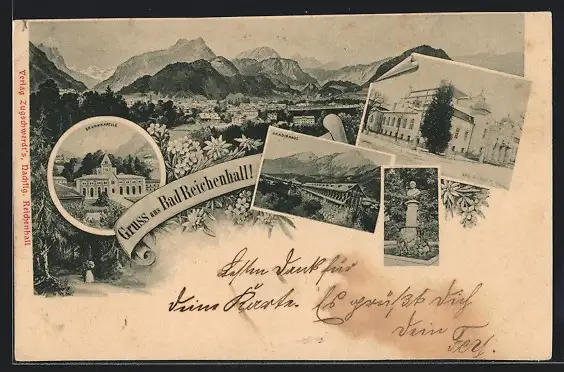 Verlag Zugschwerdt's, Nachflg. Reichenhall
Gruss aus Bad Reichenhall!
GRADIRHAUS
Besten Dank für
deine Karte. Es grüßt Dich
dein Fey.